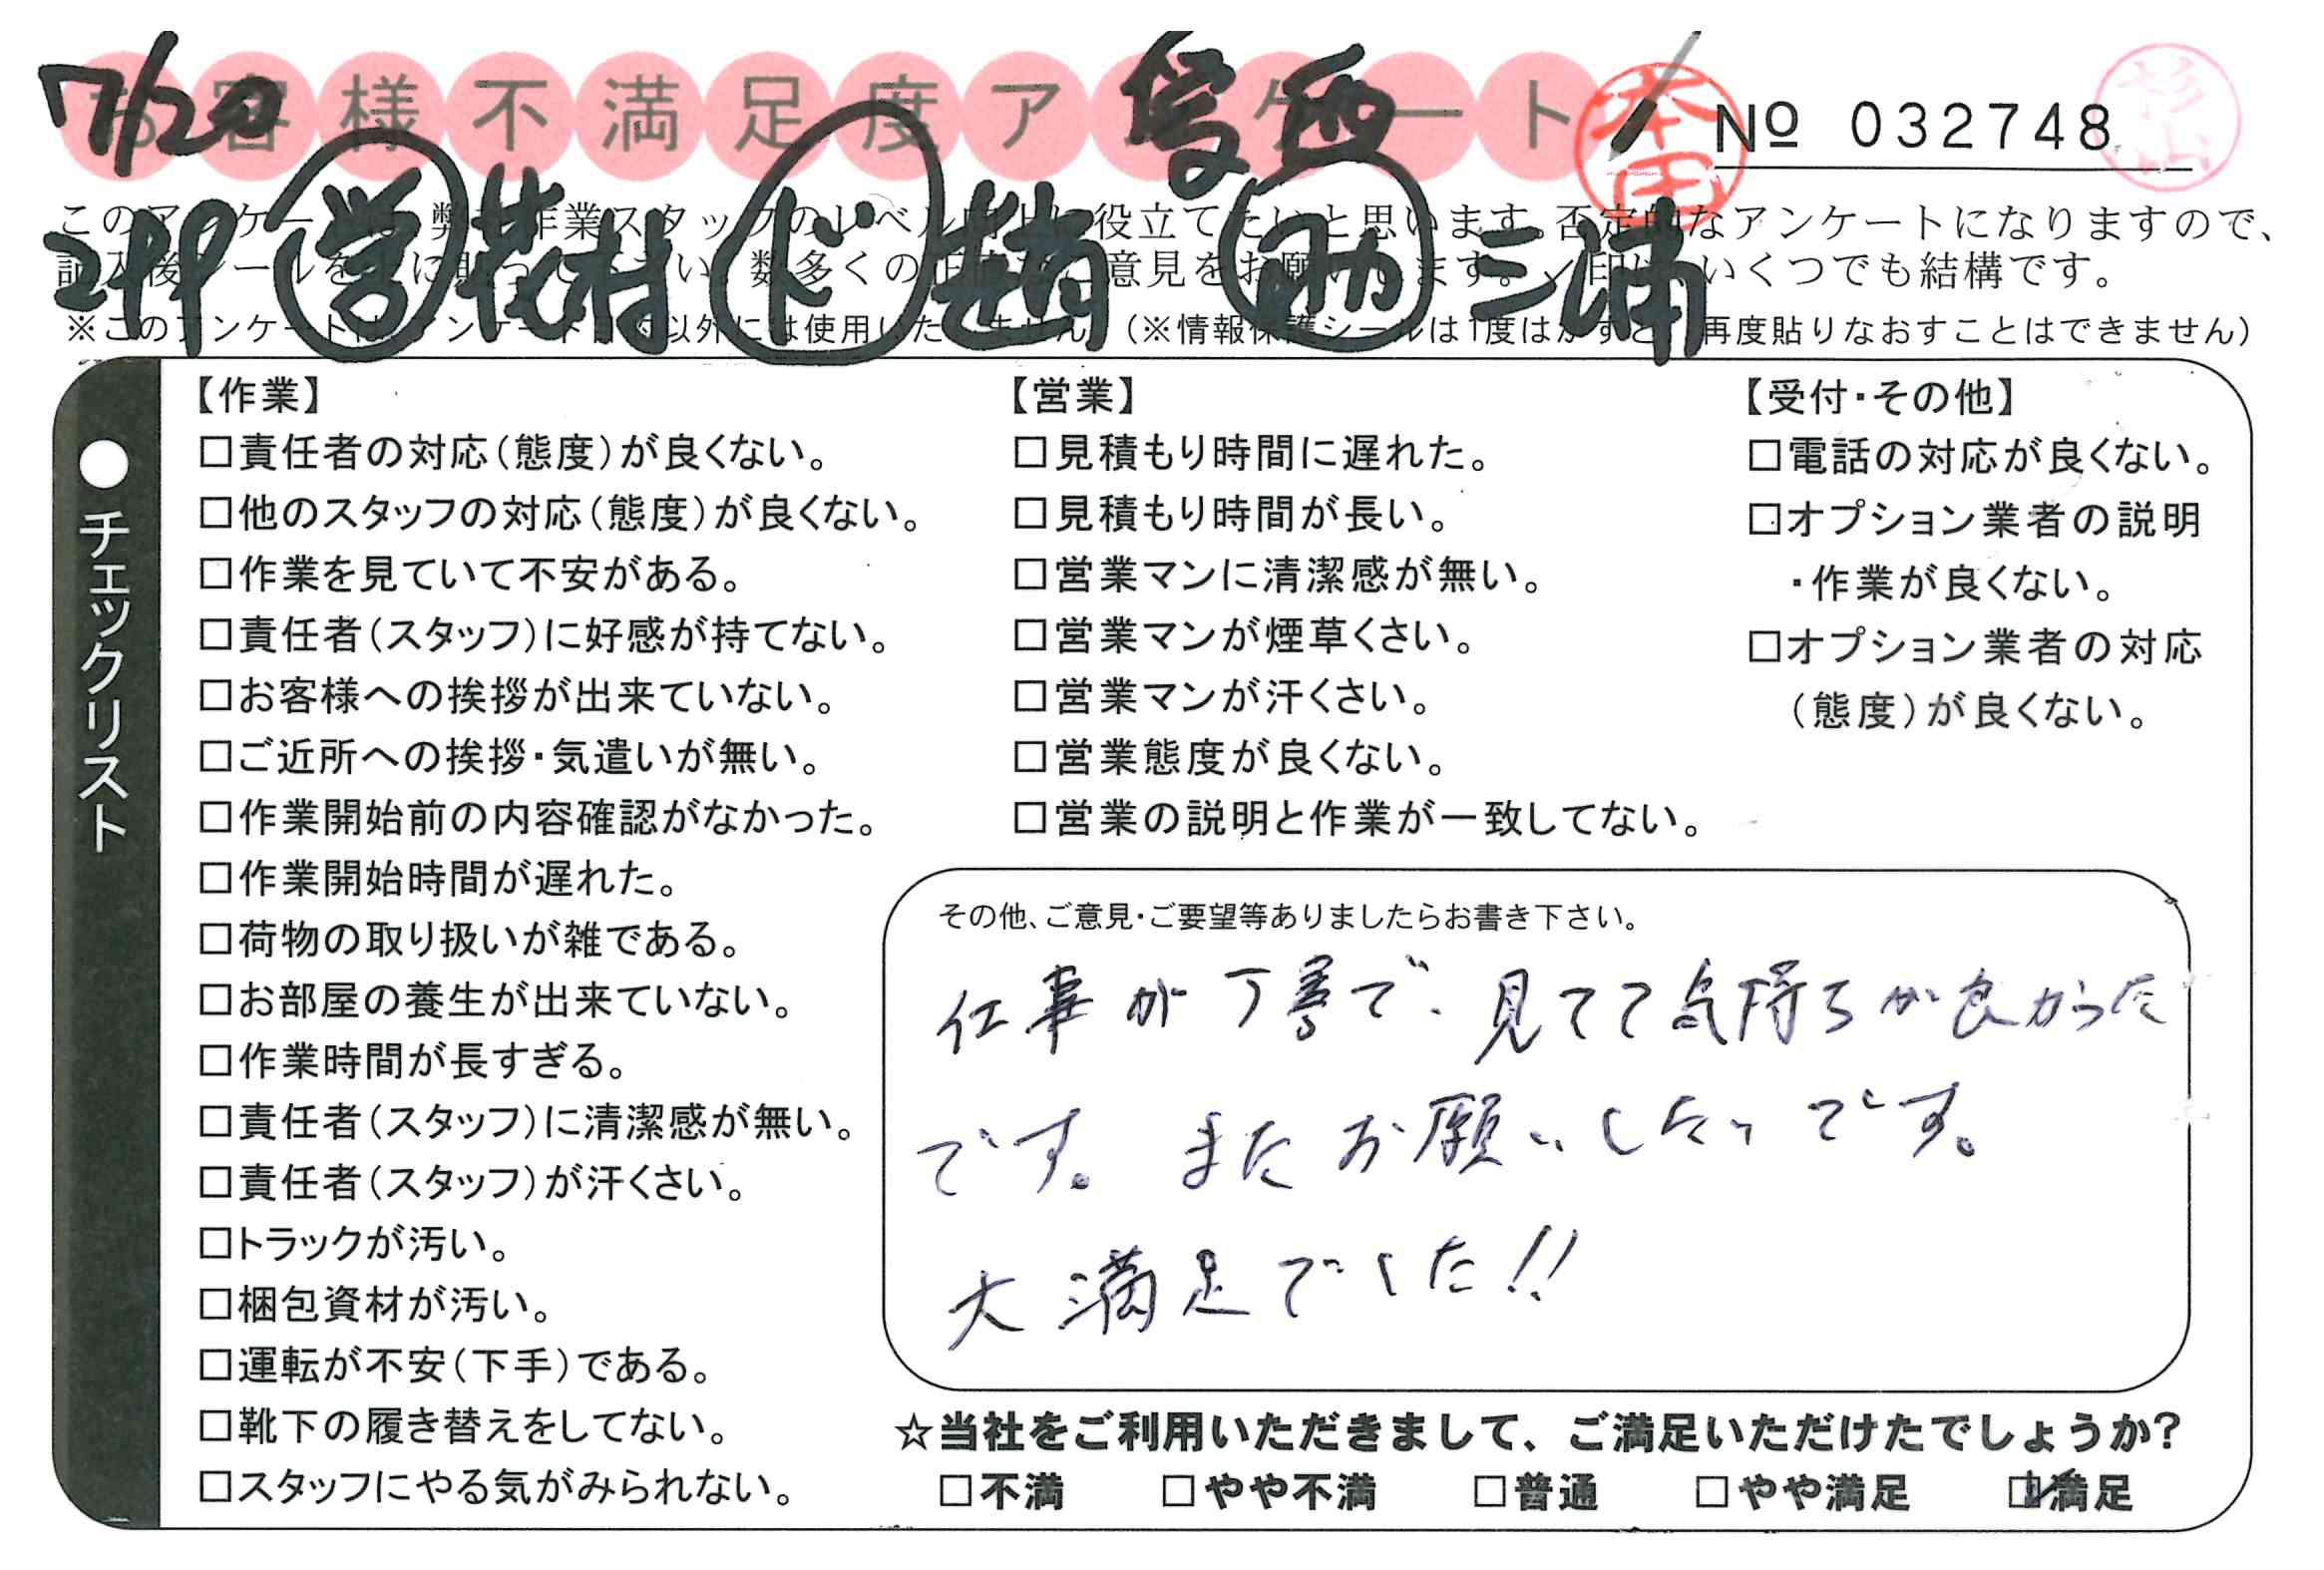 お客様不満足度アンケート
7/20
愛西
本田
No 032748
杉山
2件 学 花村 ド 趙 助 三浦
このアンケートは、弊社作業スタッフのレベル向上に役立てたいと思います。否定的なアンケートになりますので、
記入後シールを上に貼ってください。数多くの正直なご意見をお願いします。✓印は、いくつでも結構です。
※このアンケートはアンケート目的以外には使用いたしません。（※情報保護シールは1度はがすと、再度貼りなおすことはできません）
●チェックリスト
【作業】
□責任者の対応（態度）が良くない。
□他のスタッフの対応（態度）が良くない。
□作業を見ていて不安がある。
□責任者（スタッフ）に好感が持てない。
□お客様への挨拶が出来ていない。
□ご近所への挨拶・気遣いが無い。
□作業開始前の内容確認がなかった。
□作業開始時間が遅れた。
□荷物の取り扱いが雑である。
□お部屋の養生が出来ていない。
□作業時間が長すぎる。
□責任者（スタッフ）に清潔感が無い。
□責任者（スタッフ）が汗くさい。
□トラックが汚い。
□梱包資材が汚い。
□運転が不安（下手）である。
□靴下の履き替えをしてない。
□スタッフにやる気がみられない。
【営業】
□見積もり時間に遅れた。
□見積もり時間が長い。
□営業マンに清潔感が無い。
□営業マンが煙草くさい。
□営業マンが汗くさい。
□営業態度が良くない。
□営業の説明と作業が一致してない。
【受付・その他】
□電話の対応が良くない。
□オプション業者の説明
・作業が良くない。
□オプション業者の対応
（態度）が良くない。
その他、ご意見・ご要望等ありましたらお書き下さい。
仕事が丁寧で、見てて気持ちが良かった
です。またお願いしたいです。
大満足でした!!
☆当社をご利用いただきまして、ご満足いただけたでしょうか？
□不満 □やや不満 □普通 □やや満足 ☑満足